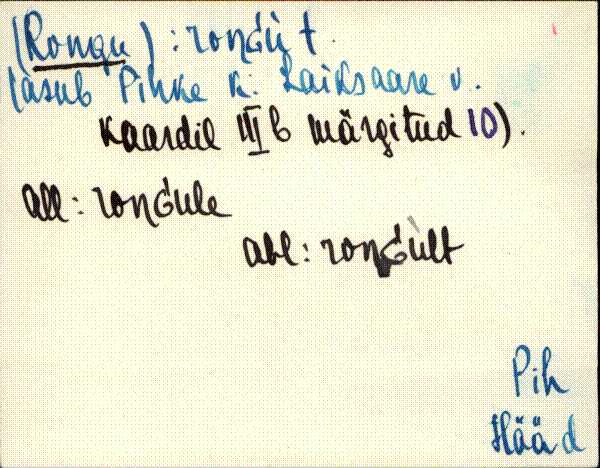 (Rongu) : roŋGù t.
(asub Pihke k. Laiksaare v.
Kaardil III b märgitud 10).
all: roŋGule
abl: roŋGùlt
Pih
Hääd